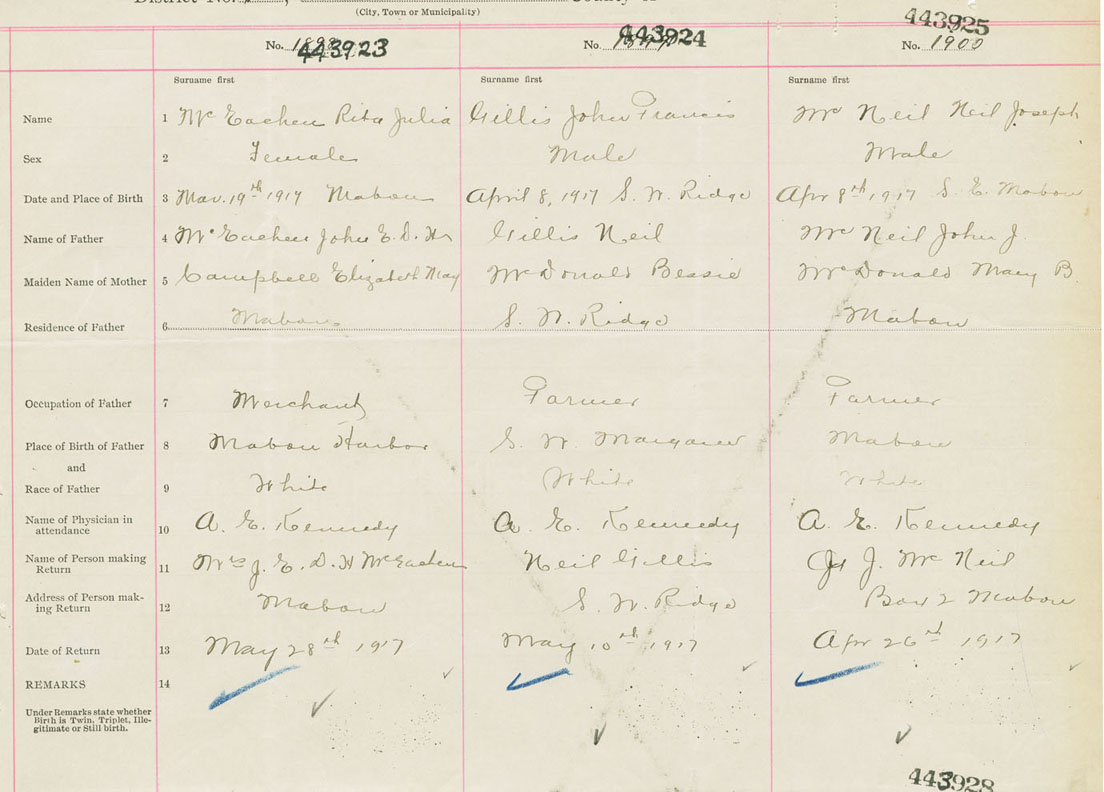 (City, Town or Municipality)
No. 443923
No. 443924
443925
No. 1900
Surname first
Surname first
Surname first
Name 1 McEachen Rita Julia Gillis John Francis McNeil Neil Joseph
Sex 2 Female Male Male
Date and Place of Birth 3 Mar. 19th 1917 Mabou April 8, 1917 S. W. Ridge Apr 8th 1917 S. E. Mabou
Name of Father 4 McEachen John E. D. H. Gillis Neil McNeil John J.
Maiden Name of Mother 5 Campbell Elizabeth May McDonald Bessie McDonald Mary B.
Residence of Father 6 Mabou S. W. Ridge Mabou
Occupation of Father 7 Merchant Farmer Farmer
Place of Birth of Father 8 Mabou Harbor S. W. Margaree Mabou
and
Race of Father 9 White White White
Name of Physician in
attendance 10 A. E. Kennedy A. E. Kennedy A. E. Kennedy
Name of Person making
Return 11 Mrs J. E. D. H McEachen Neil Gillis J. McNeil
Address of Person mak-
ing Return 12 Mabou S. W. Ridge Box 2 Mabou
Date of Return 13 May 28th 1917 May 10th 1917 Apr 26th 1917
REMARKS 14
Under Remarks state whether
Birth is Twin, Triplet, Ille-
gitimate or Still birth.
443928